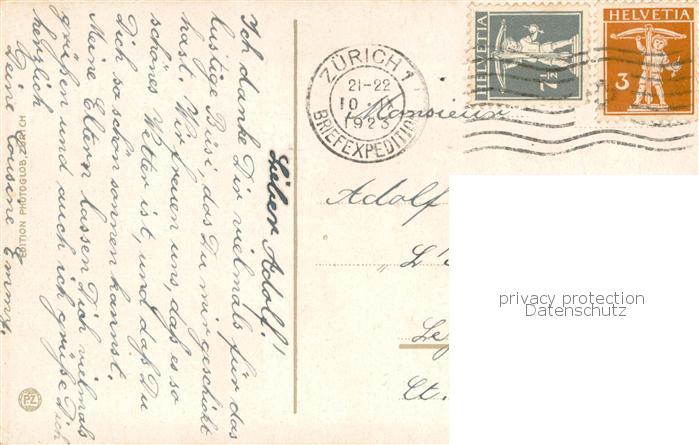 Lieber Adolf!
Ich danke Dir vielmals für das
lustige Büsi, das Du mir geschickt
hast. Wir freuen uns, daß es so
schönes Wetter ist, und daß Du
Dich so schön sonnen kannst.
Meine Eltern lassen Dich vielmals
grüßen und auch ich grüße Dich
herzlich
Deine Cousine Emmy.
EDITION PHOTOGLOB, ZÜRICH
P.Z.
ZÜRICH 1
21-22
10
1923
BRIEFEXPEDITION
HELVETIA
7½
HELVETIA
3
Monsieur
Adolf
L'
Le
Ct.
privacy protection
Datenschutz